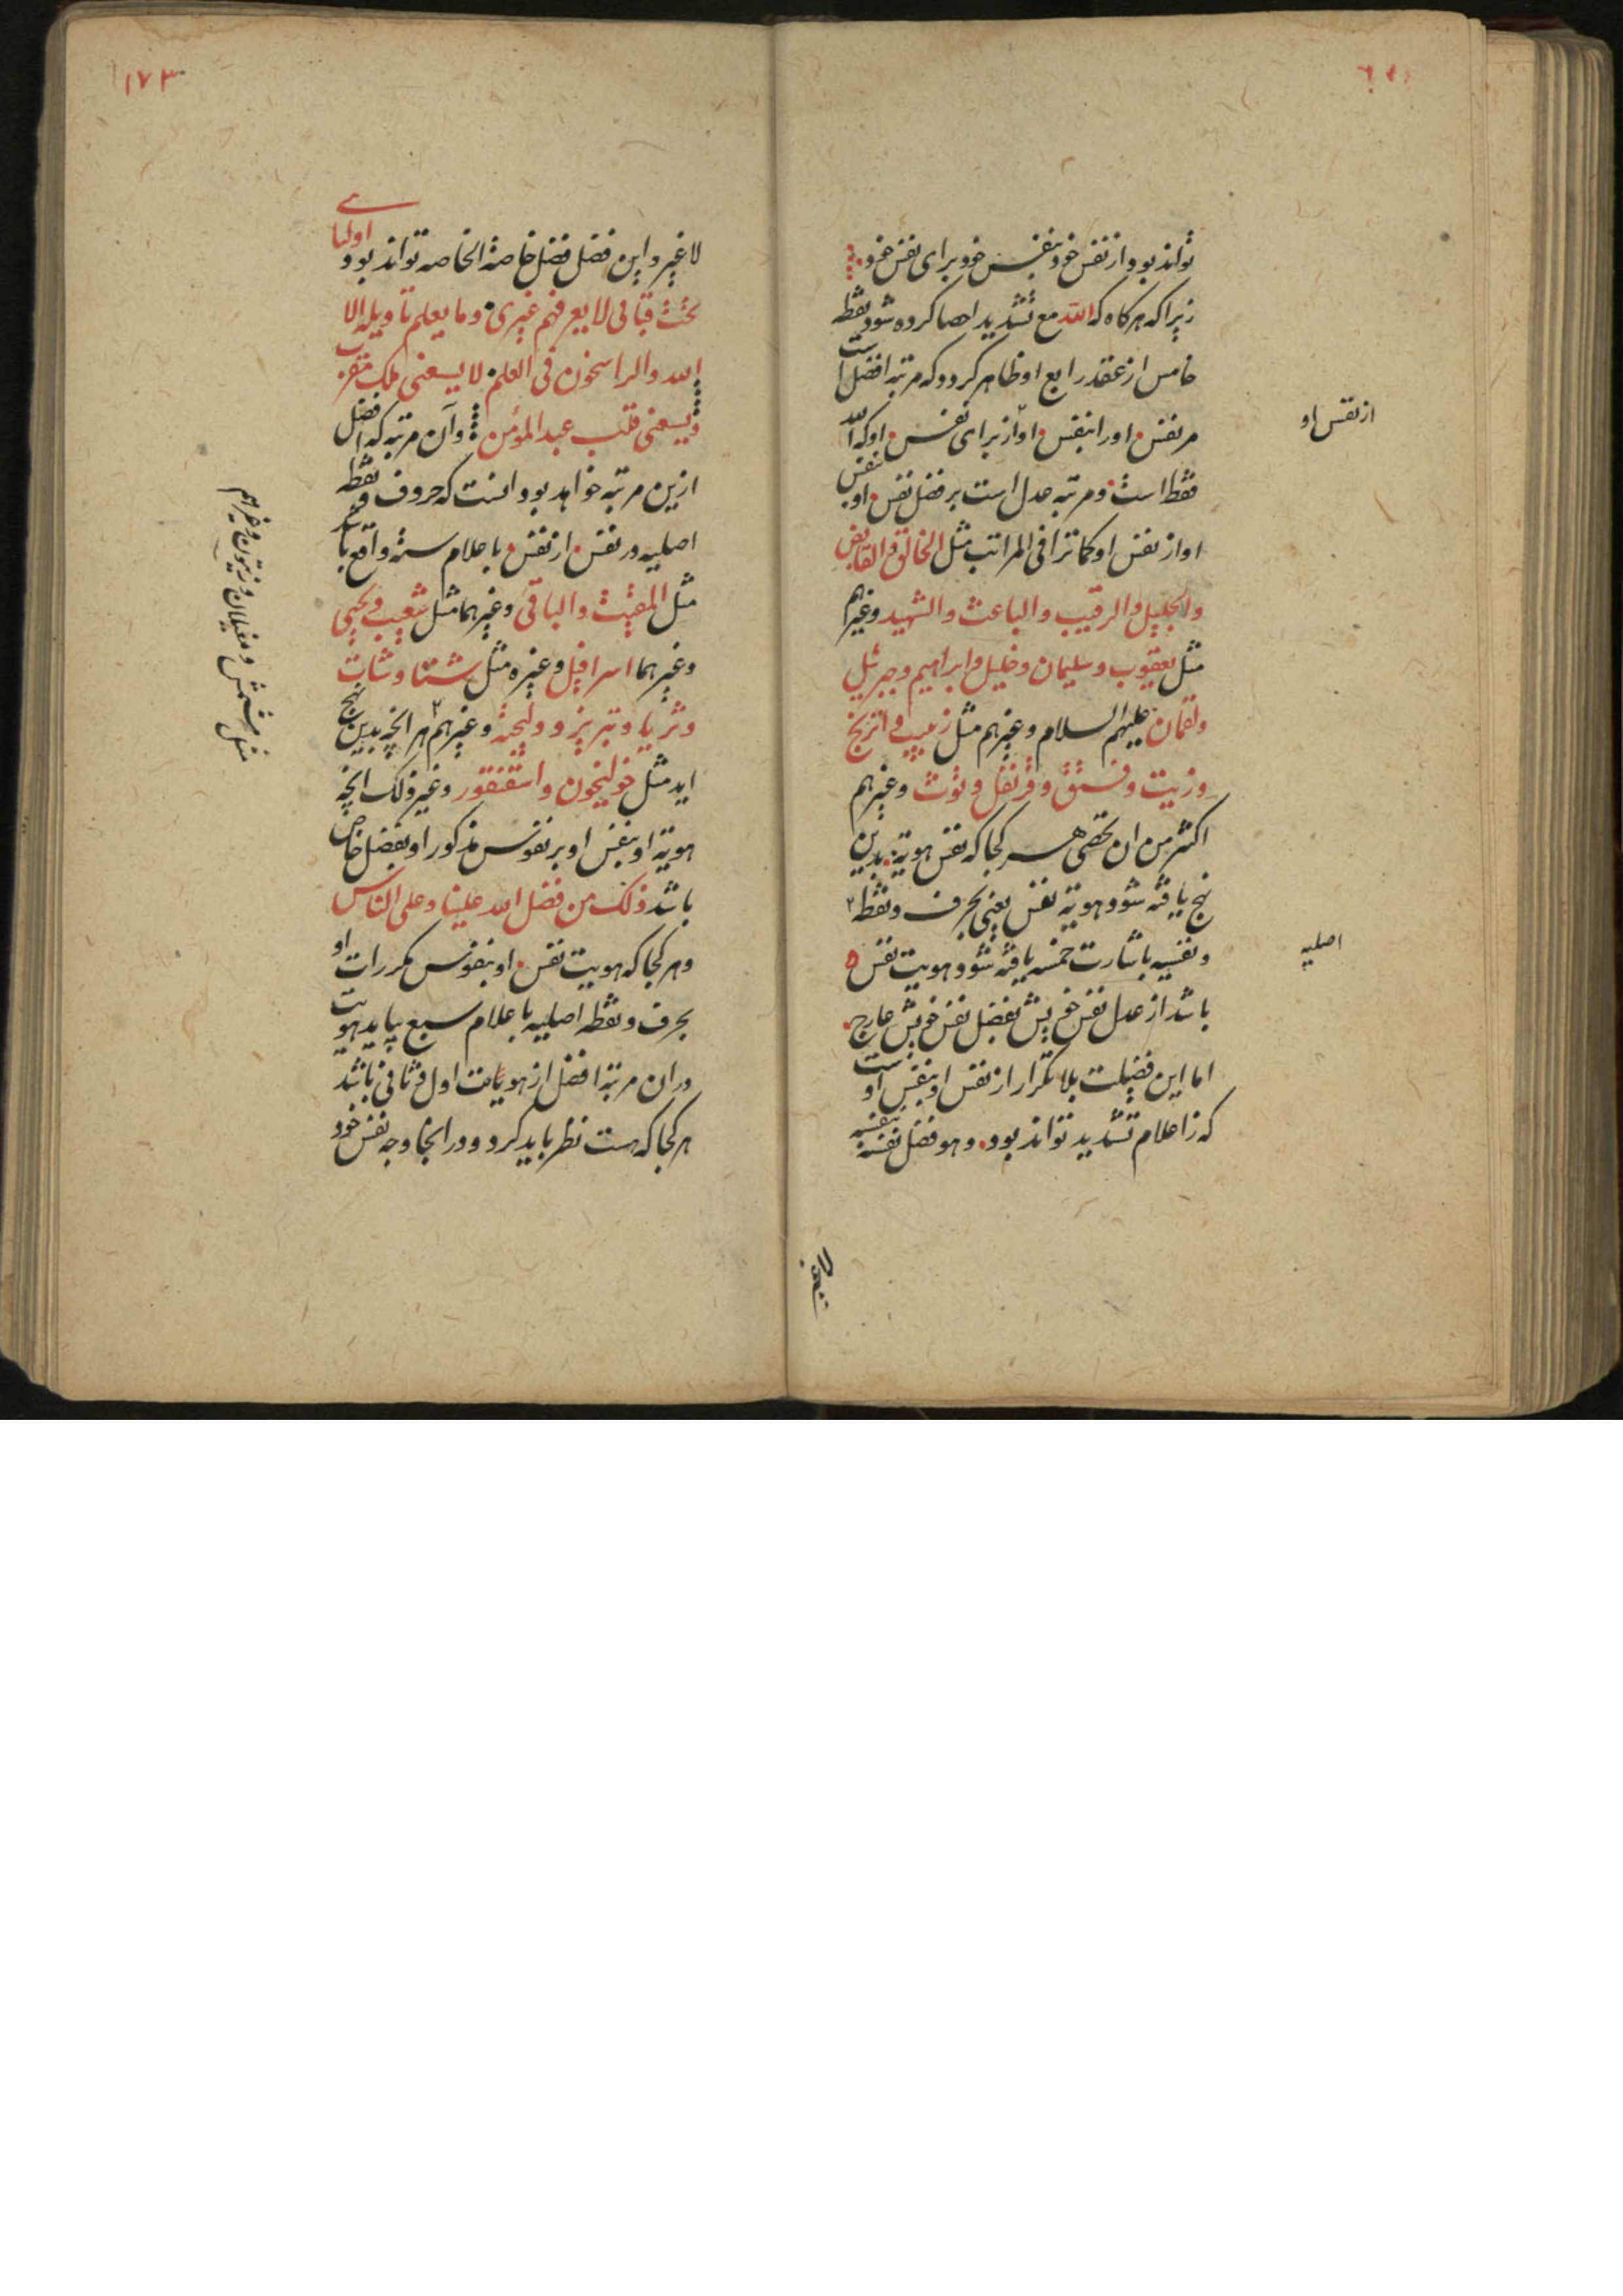 تواند بود و از نفس خود بنفس خود برای نفس خود
زیرا که هر کاه که الله مع تشدید احصا کرده شود نقطه
خامس از عقد رابع او ظاهر کردد که مرتبه افضل است
مر نفس اورا بنفس او از برای نفس او که الله
از نفس او
فقط است و مرتبه عدل است بر فضل نفس او بنفس
او از نفس او کما ترا فی المراتب مثل الخالق والقابض
والجلیل والرقیب والباعث والشهید وغیرهم
مثل یعقوب و سلیمان و خلیل و ابراهیم و جبرئیل
ولقمان علیهم السلام وغیرهم مثل زبیب و اترنج
وزیت و فستق و قرنفل و توت وغیرهم
اکثر من ان تحصی هر کجا که نفس هویة بدین
نهج یافته شود هویة نفس یعنی بحرف و نقطه
اصلیه
و نفسیه باشارت خمسه یافته شود هویت نفس
باشد از عدل نفس خویش بفضل نفس خویش عارج
اما این فضیلت بلا تکرار از نفس او بنفس اوست
که زاعلام تشدید تواند بود و هو فضل نفسه بنفسه
١٧٣
لا غیر و این فضل فضل خاصة الخاصه تواند بود و
اولیائی
تحت قبابی لا یعرفهم غیری وما یعلم تاویله الا
الله والراسخون فی العلم لا یسعنی ملک مقرب
ویسعنی قلب عبد المؤمن وآن مرتبه که افضل
ازین مرتبه خواهد بود انست که حروف و نقطه
اصلیه در نفس از نفس باعلام ستة واقع باشد
مثل المقیت والباقی وغیرهما مثل شعیب و یحیی
وغیرهما اسرافیل وغیره مثل شتا و شات
و ثریا و تبریز و ولیجة وغیرهم هر انچه بدین نهج
مثل مشمش و مغیلان و زیتون وغیرهم
اید مثل خولنجون و اسقنقور وغیر ذلک انچه
هویة او بنفس او بر نفوس مذکور او بفضل خاص
باشد ذلک من فضل الله علینا وعلی الناس
وهر کجا که هویت نفس او بنفوس مکررات او
بحرف و نقطه اصلیه باعلام سبع بیاید هویت
دران مرتبه افضل از هویات اول و ثانی باشد
هر کجا که هست نظر باید کرد و در انجا وجه نفس خود